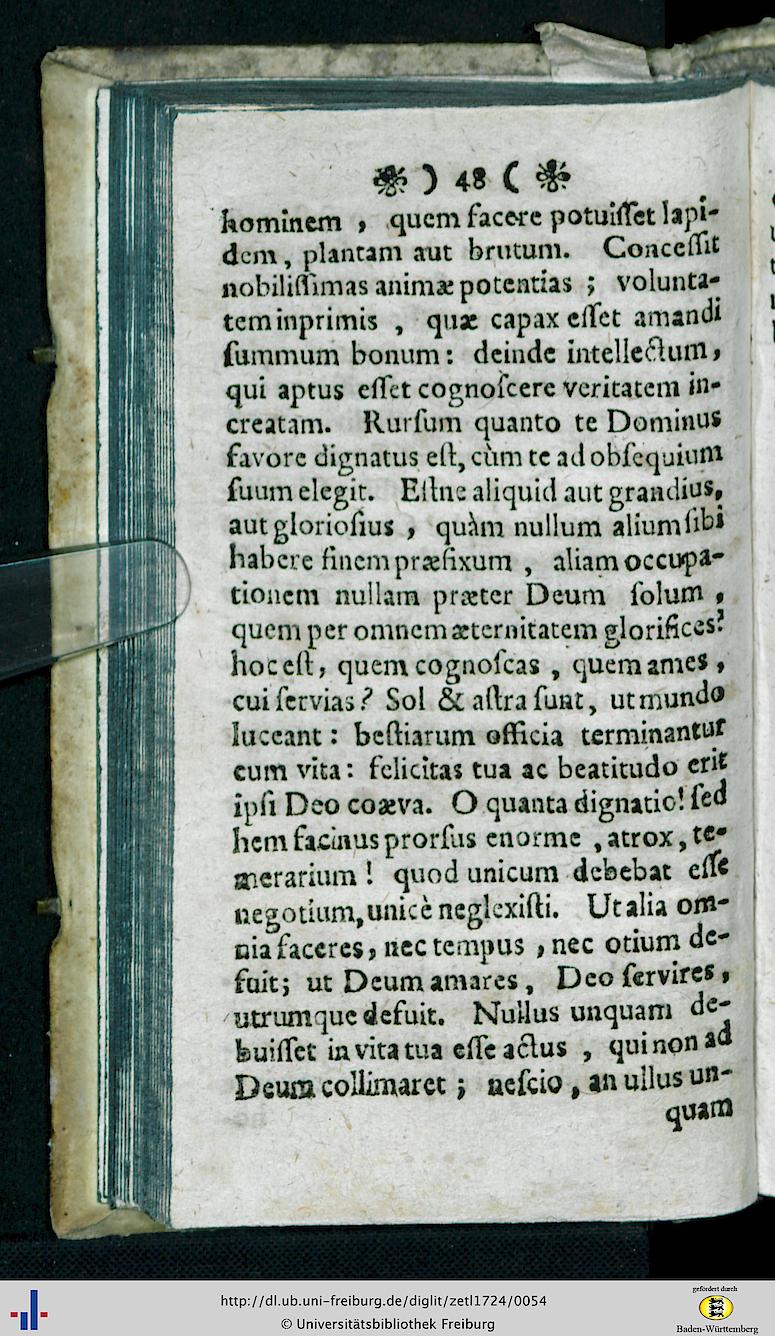 ❧ ) 48 ( ❧
hominem , quem facere potuiſſet lapi-
dem, plantam aut brutum. Conceſſit
nobiliſſimas animæ potentias ; volunta-
tem inprimis , quæ capax eſſet amandi
ſummum bonum: deinde intellectum,
qui aptus eſſet cognoſcere veritatem in-
creatam. Rurſum quanto te Dominus
favore dignatus eſt, cùm te ad obſequium
ſuum elegit. Eſtne aliquid aut grandius,
aut glorioſius , quàm nullum alium ſibi
habere finem præfixum , aliam occupa-
tionem nullam præter Deum ſolum ,
quem per omnem æternitatem glorifices?
hoc eſt, quem cognoſcas , quem ames ,
cui ſervias? Sol & aſtra ſunt, ut mundo
luceant : beſtiarum officia terminantur
cum vita: felicitas tua ac beatitudo erit
ipſi Deo coæva. O quanta dignatio! ſed
hem facinus prorſus enorme , atrox, te-
merarium ! quod unicum debebat eſſe
negotium, unicè neglexiſti. Ut alia om-
nia faceres, nec tempus , nec otium de-
fuit; ut Deum amares, Deo ſervires,
utrumque defuit. Nullus unquam de-
buiſſet in vita tua eſſe actus , qui non ad
Deum collimaret ; neſcio, an ullus un-
quam
http://dl.ub.uni-freiburg.de/diglit/zetl1724/0054
© Universitätsbibliothek Freiburg
gefördert durch
Baden-Württemberg